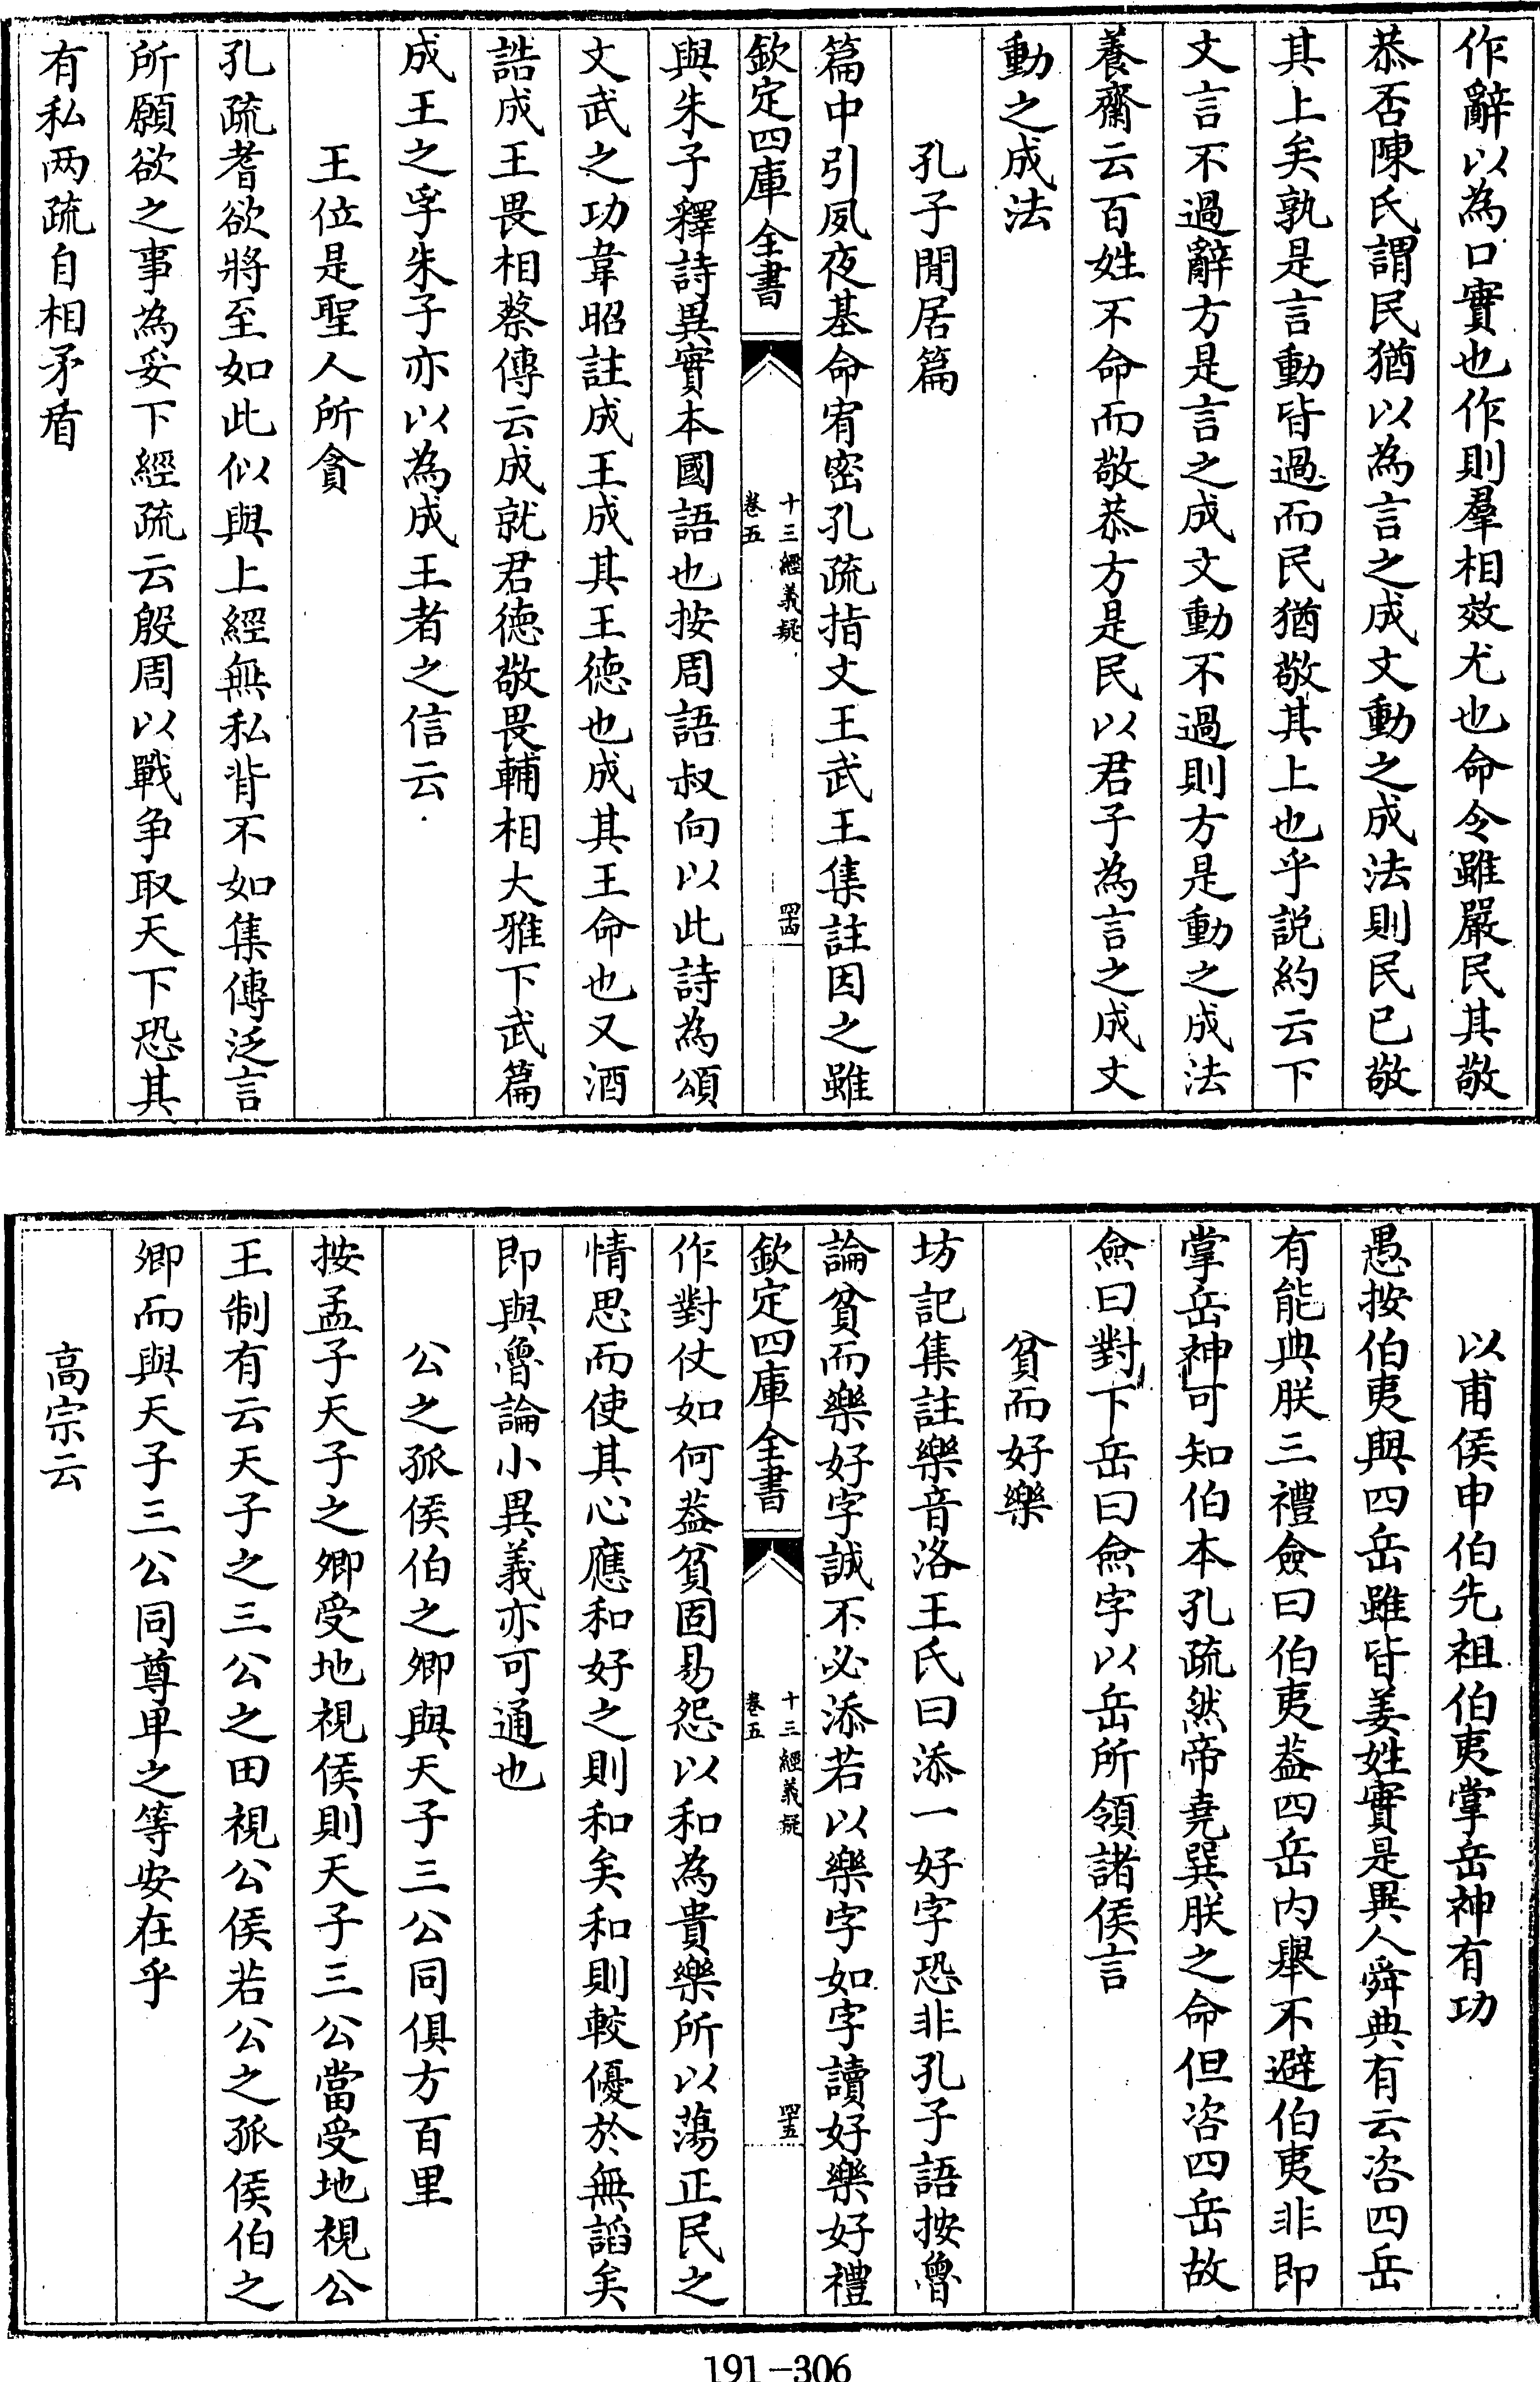 作辭以為口實也作則羣相效尤也命令雖嚴民其敬
恭否陳氏謂民猶以為言之成文動之成法則民已敬
其上矣孰是言動皆過而民猶敬其上也乎説約云下
文言不過辭方是言之成文動不過則方是動之成法
養齋云百姓不命而敬恭方是民以君子為言之成文
動之成法
孔子閒居篇
篇中引夙夜基命宥密孔疏指文王武王集註因之雖
欽定四庫全書
十三經義疑
卷五
四十四
與朱子釋詩異實本國語也按周語叔向以此詩為頌
文武之功韋昭註成王成其王德也成其王命也又酒
誥成王畏相蔡傳云成就君德敬畏輔相大雅下武篇
成王之孚朱子亦以為成王者之信云
王位是聖人所貪
孔疏耆欲將至如此似與上經無私背不如集傳泛言
所願欲之事為妥下經疏云殷周以戰争取天下恐其
有私两疏自相矛盾
以甫侯申伯先祖伯夷掌岳神有功
愚按伯夷與四岳雖皆姜姓實是異人舜典有云咨四岳
有能典朕三禮僉曰伯夷葢四岳内舉不避伯夷非即
掌岳神可知伯本孔疏然帝堯巽朕之命但咨四岳故
僉曰對下岳曰僉字以岳所領諸侯言
貧而好樂
坊記集註樂音洛王氏曰添一好字恐非孔子語按魯
論貧而樂好字誠不必添若以樂字如字讀好樂好禮
欽定四庫全書
十三經義疑
卷五
四十五
作對仗如何葢貧固易怨以和為貴樂所以蕩正民之
情思而使其心應和好之則和矣和則較優於無謟矣
即與魯論小異義亦可通也
公之孤侯伯之卿與天子三公同俱方百里
按孟子天子之卿受地視侯則天子三公當受地視公
王制有云天子之三公之田視公侯若公之孤侯伯之
卿而與天子三公同尊卑之等安在乎
高宗云
191-306